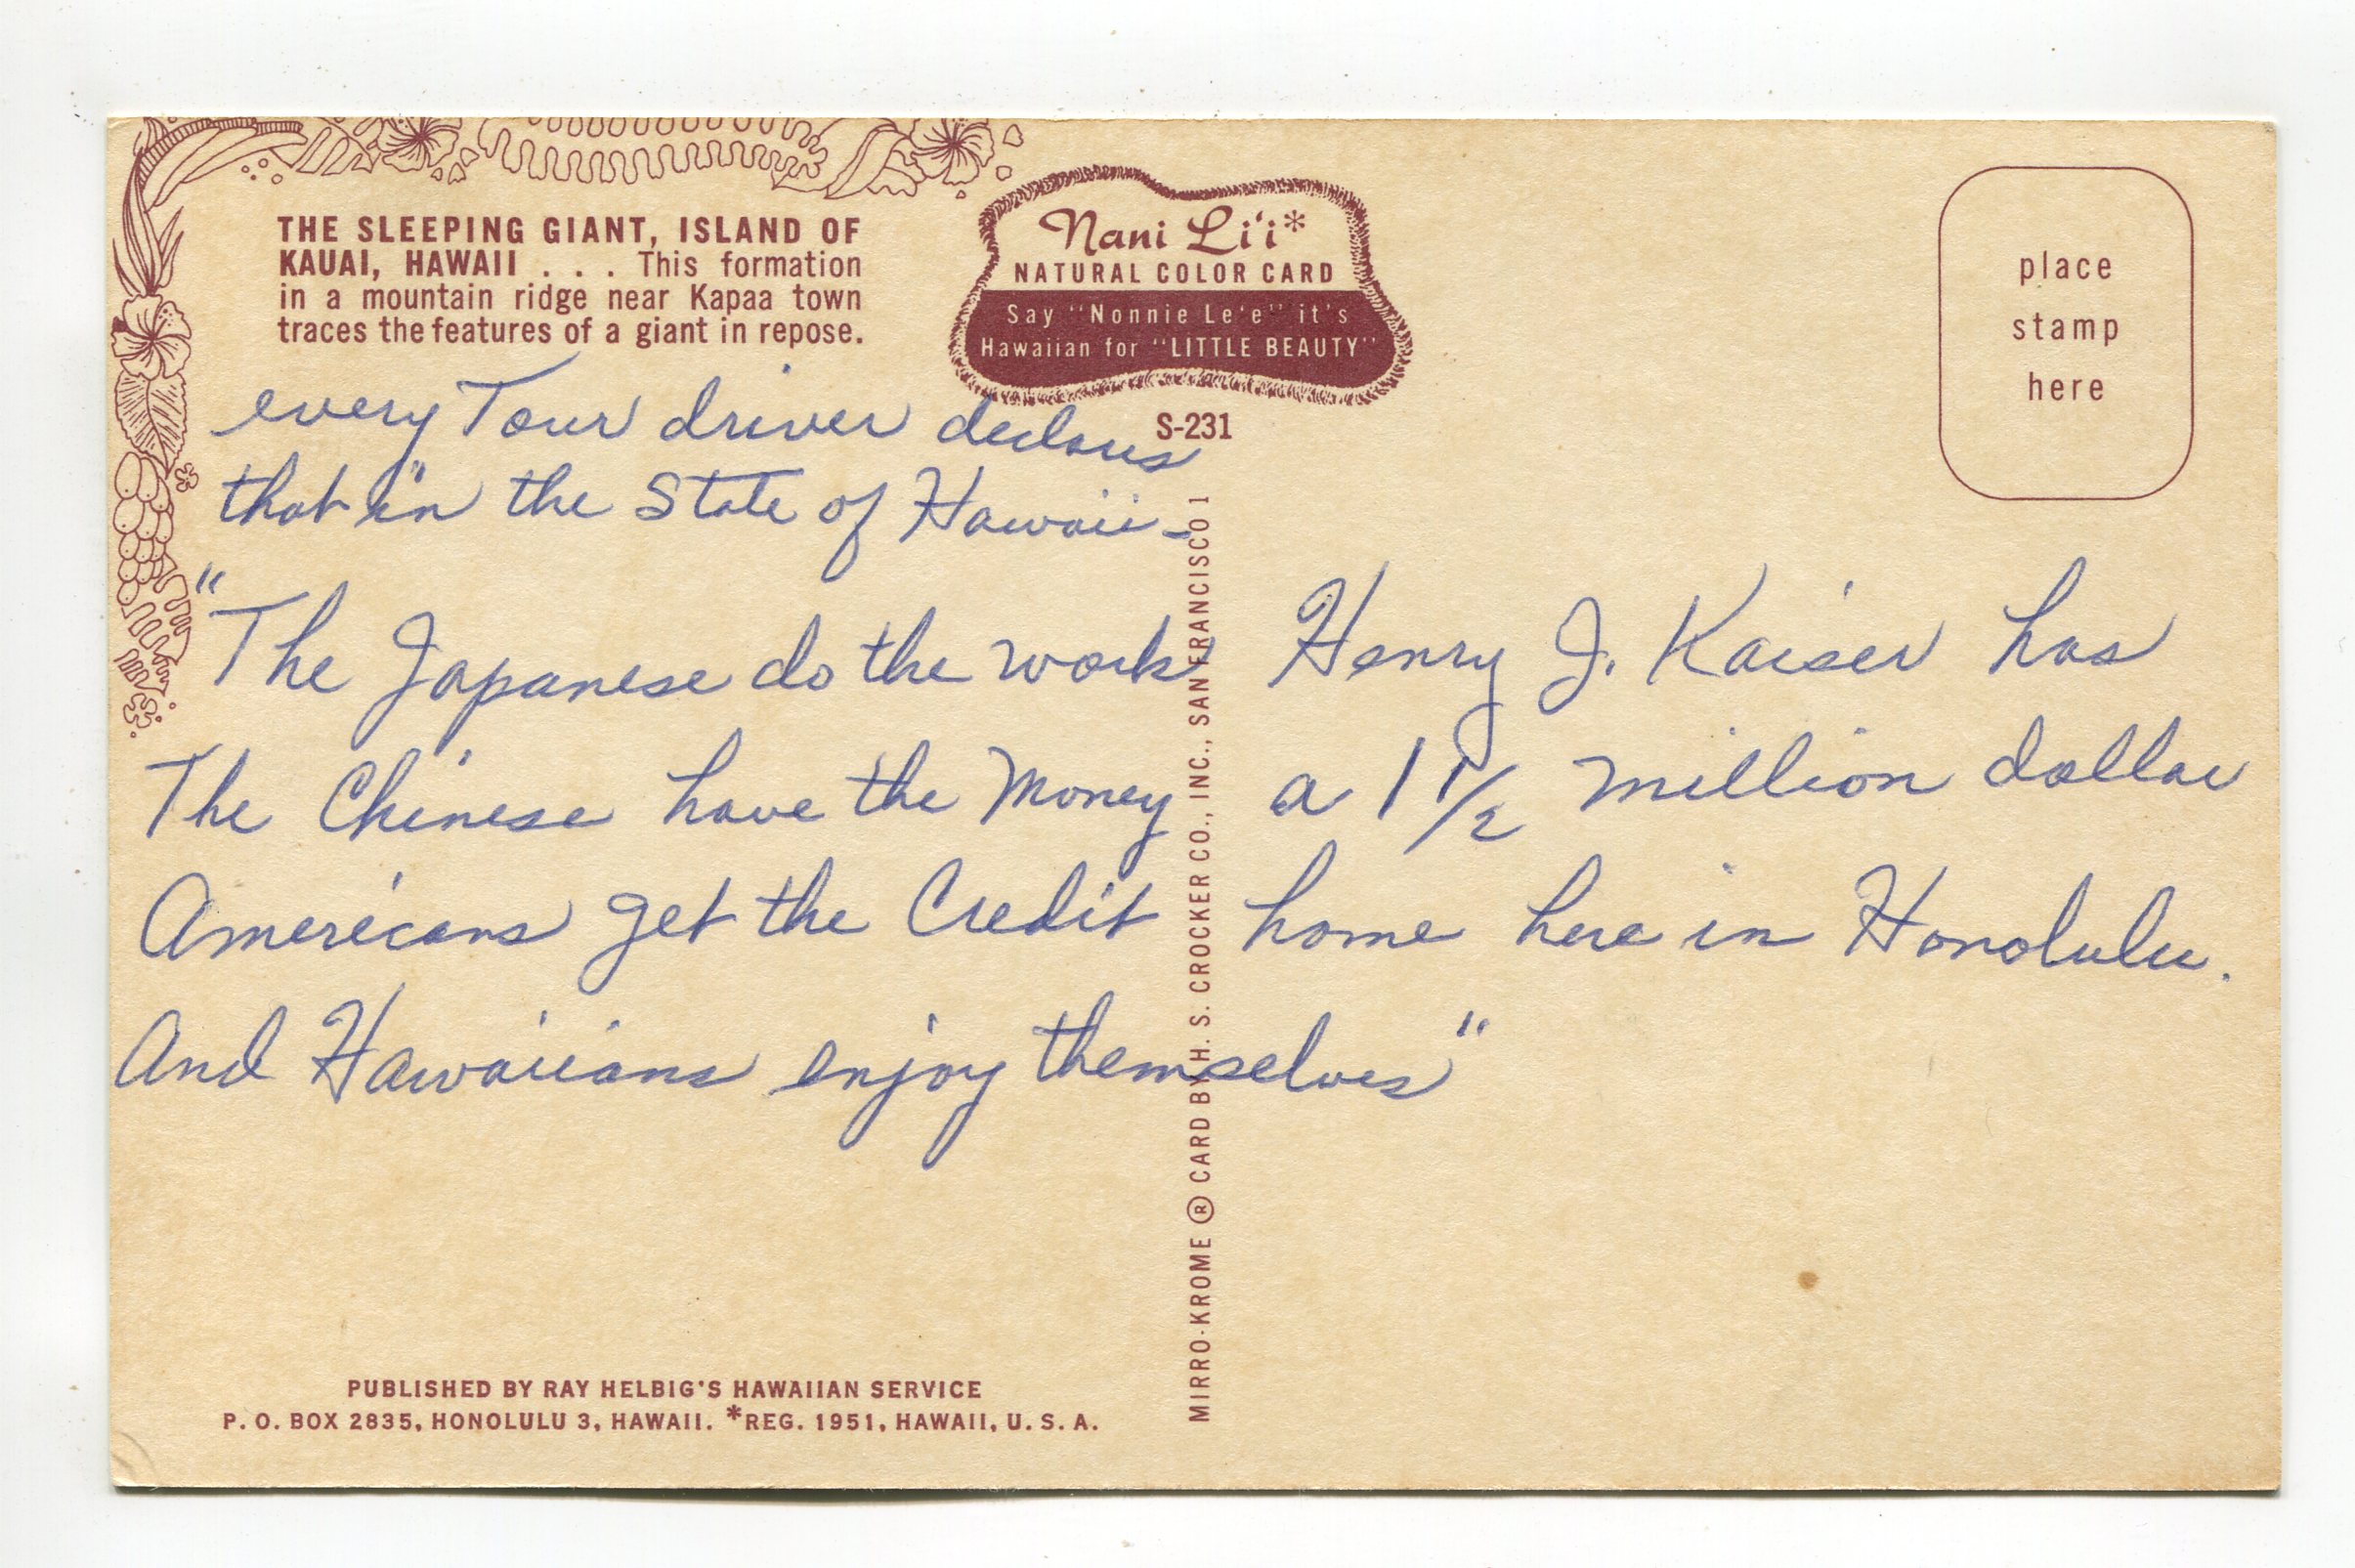 THE SLEEPING GIANT, ISLAND OF
KAUAI, HAWAII . . . This formation
in a mountain ridge near Kapaa town
traces the features of a giant in repose.
Nani Li'i*
NATURAL COLOR CARD
Say "Nonnie Le'e" it's
Hawaiian for "LITTLE BEAUTY"
S-231
place
stamp
here
every Tour driver declares
that in the State of Hawaii-
"The Japanese do the work
The Chinese have the Money
Americans get the Credit
And Hawaiians enjoy themselves"
Henry J. Kaiser has
a 1 1/2 million dollar
home here in Honolulu.
MIRRO-KROME ® CARD BY H. S. CROCKER CO., INC., SAN FRANCISCO 1
PUBLISHED BY RAY HELBIG'S HAWAIIAN SERVICE
P. O. BOX 2835, HONOLULU 3, HAWAII. *REG. 1951, HAWAII, U. S. A.